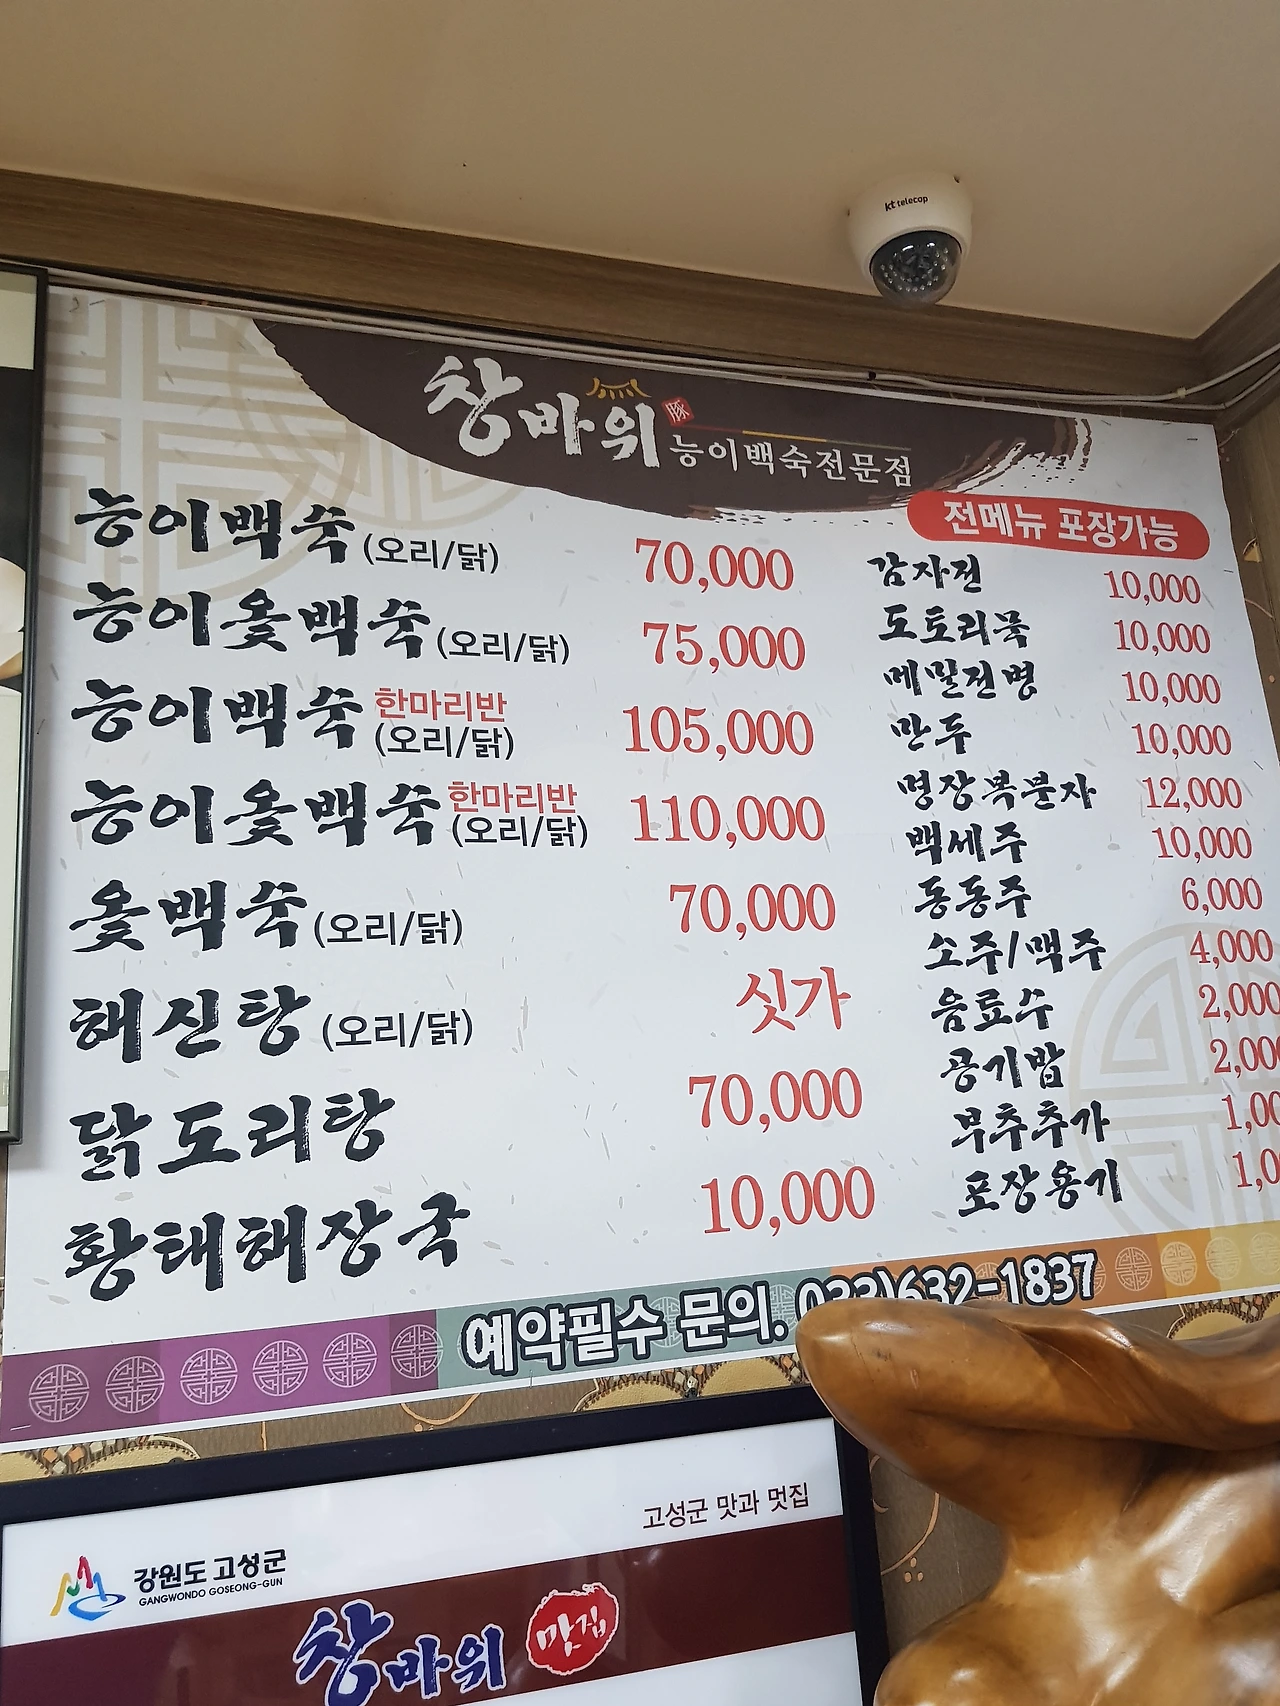 kt telecop
창바위 豚
능이백숙전문점
전메뉴 포장가능
능이백숙 (오리/닭) 70,000
능이옻백숙 (오리/닭) 75,000
능이백숙 한마리반 (오리/닭) 105,000
능이옻백숙 한마리반 (오리/닭) 110,000
옻백숙 (오리/닭) 70,000
해신탕 (오리/닭) 싯가
닭도리탕 70,000
황태해장국 10,000
감자전 10,000
도토리묵 10,000
메밀전병 10,000
만두 10,000
명장복분자 12,000
백세주 10,000
동동주 6,000
소주/맥주 4,000
음료수 2,000
공기밥 2,00
부추추가 1,00
포장용기 1,0
예약필수 문의. 033)632-1837
고성군 맛과 멋집
강원도 고성군
GANGWONDO GOSEONG-GUN
창바위 맛집